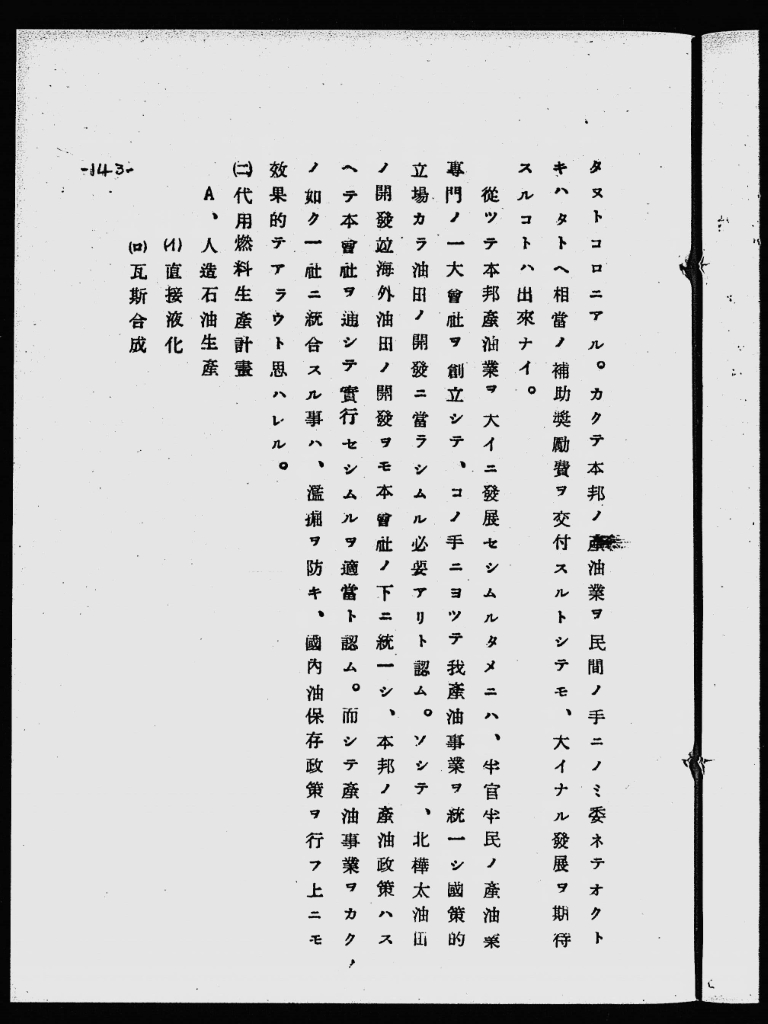 タヌトコロニアル。カクテ本邦ノ產油業ヲ民間ノ手ニノミ委ネテオクト
キハタトヘ相當ノ補助奬勵費ヲ交付スルトシテモ、大イナル發展ヲ期待
スルコトハ出來ナイ。
從ツテ本邦產油業ヲ大イニ發展セシムルタメニハ、半官半民ノ產油業
專門ノ一大會社ヲ創立シテ、コノ手ニヨツテ我產油事業ヲ統一シ國策的
立場カラ油田ノ開發ニ當ラシムル必要アリト認ム。ソシテ、北樺太油田
ノ開發竝海外油田ノ開發ヲモ本會社ノ下ニ統一シ、本邦ノ產油政策ハス
ヘテ本會社ヲ通シテ實行セシムルヲ適當ト認ム。而シテ產油事業ヲカク
ノ如ク一社ニ統合スル事ハ、濫掘ヲ防キ、國內油保存政策ヲ行フ上ニモ
效果的テアラウト思ハレル。
㈡代用燃料生產計畫
A、人造石油生產
(イ)直接液化
(ロ)瓦斯合成
-143-